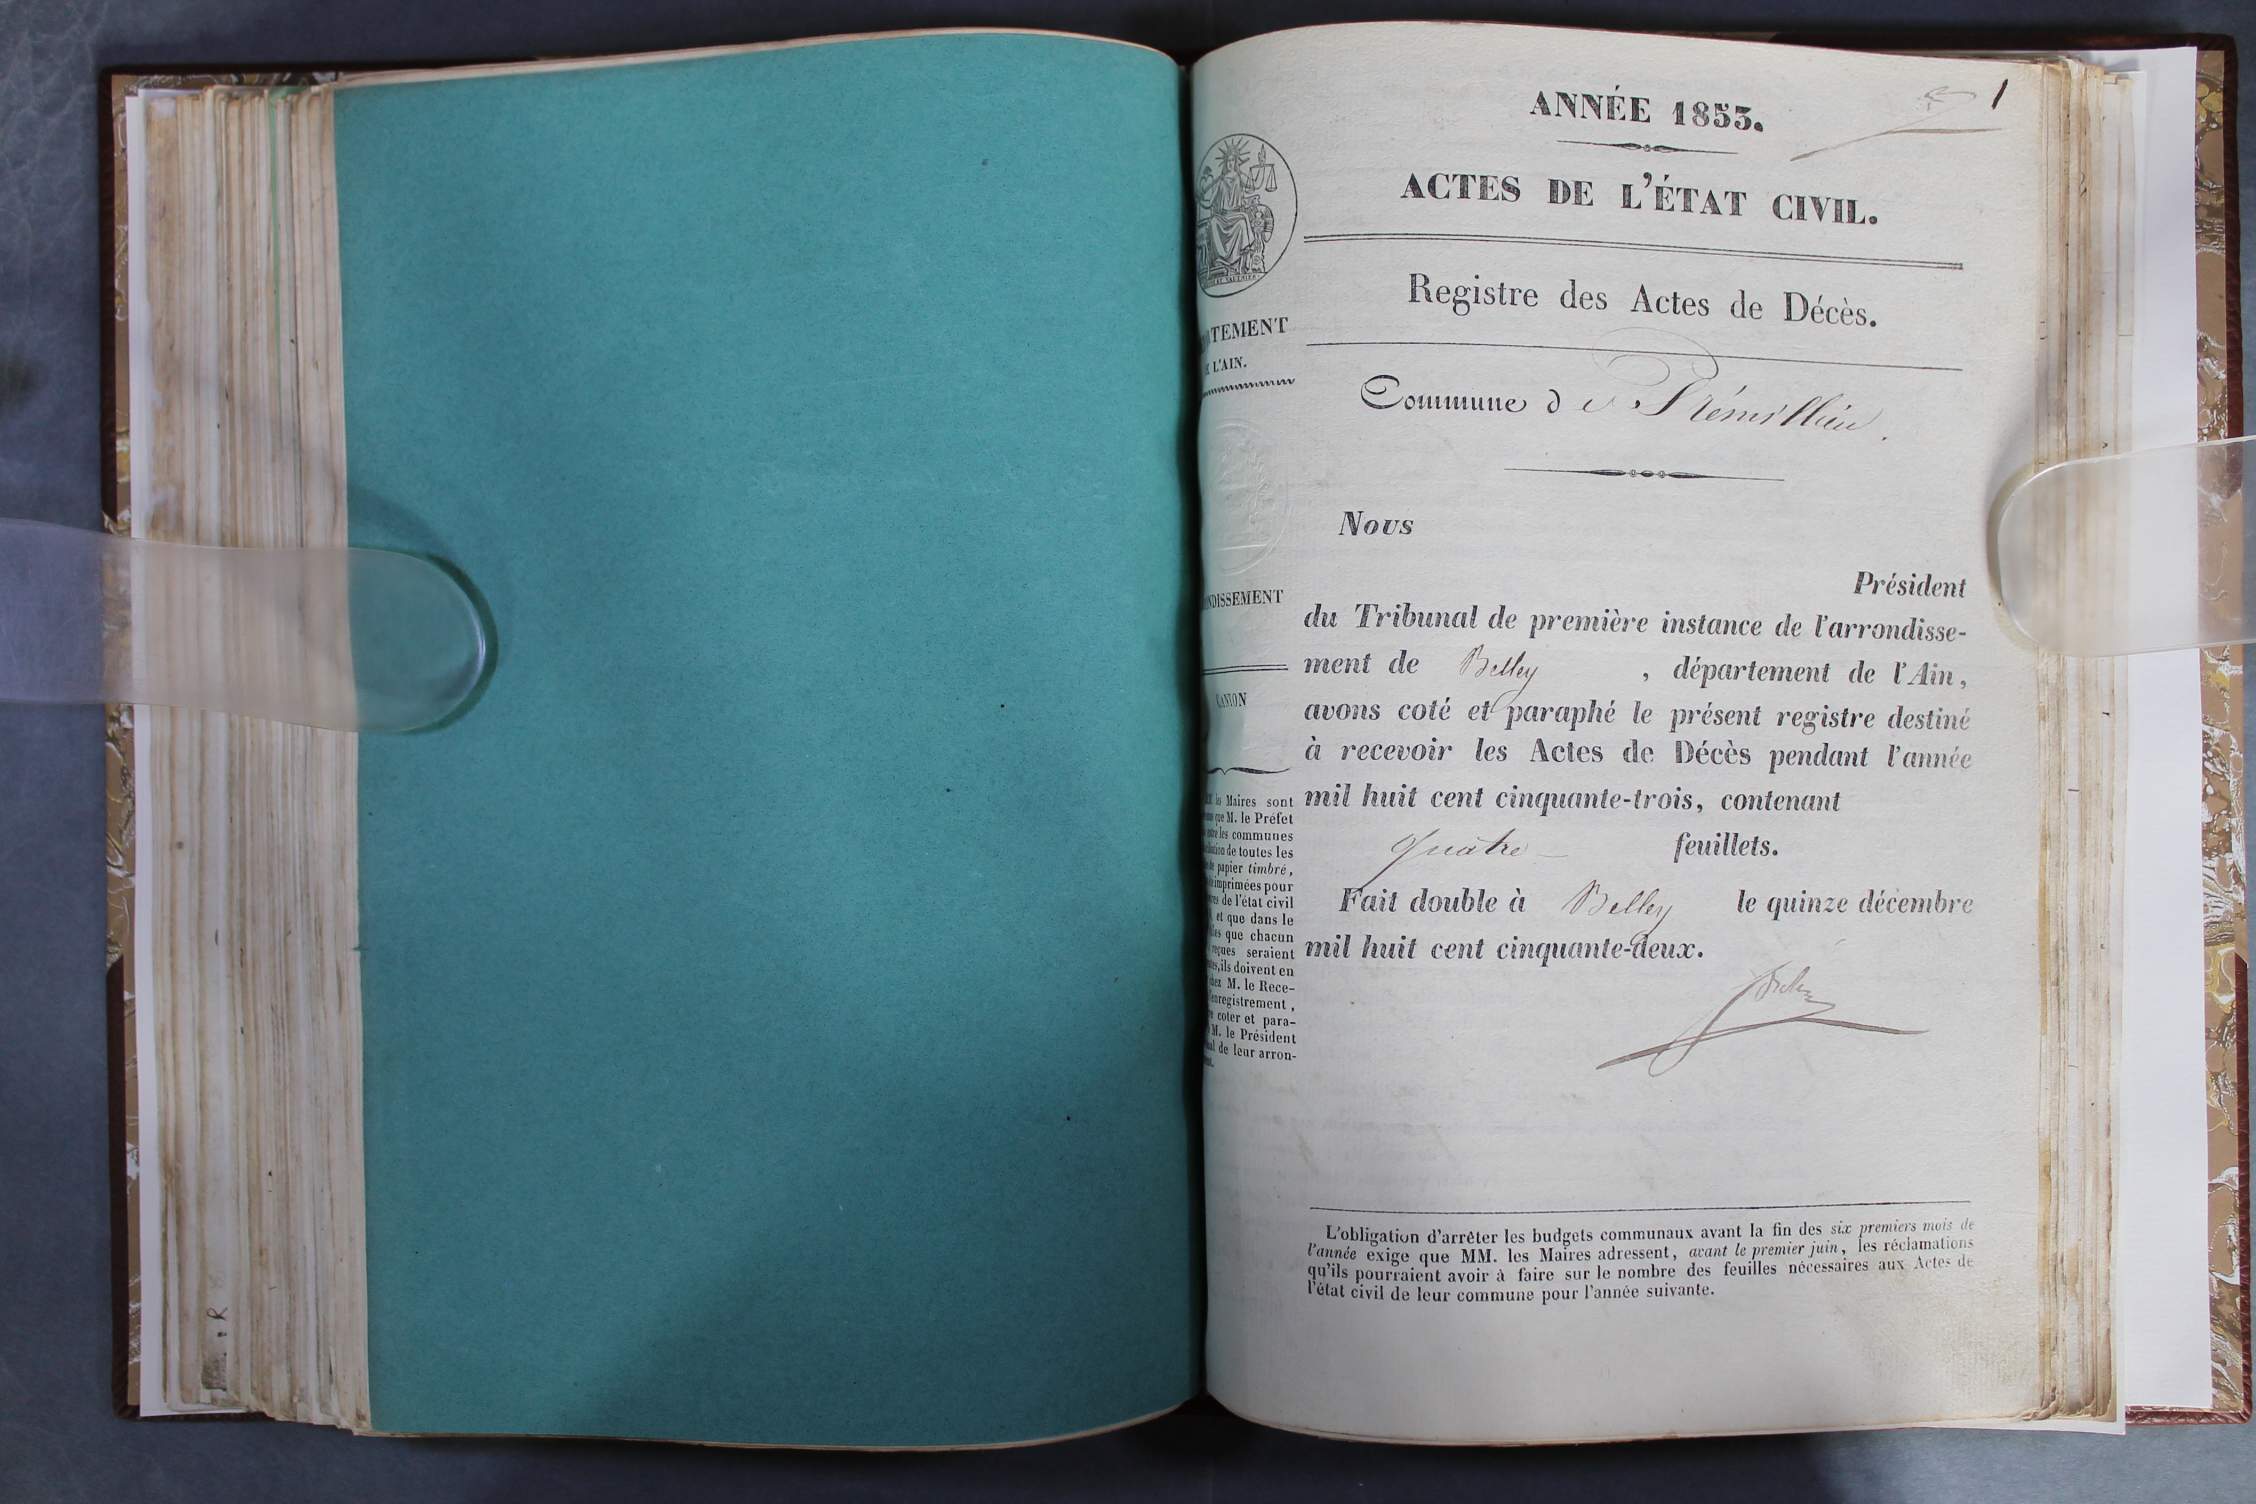 1
ANNÉE 1853.
ACTES DE L'ÉTAT CIVIL.
Registre des Actes de Décès.
TEMENT
L'AIN.
Commune de Prémillieu.
Nous
Président
NDISSEMENT
du Tribunal de première instance de l'arrondisse-
ment de Belley , département de l'Ain,
CANTON
avons coté et paraphé le présent registre destiné
à recevoir les Actes de Décès pendant l'année
mil huit cent cinquante-trois, contenant
quatre feuillets.
Fait double à Belley le quinze décembre
mil huit cent cinquante-deux.
les Maires sont
que M. le Préfet
les communes
de toutes les
papier timbré,
imprimées pour
de l'état civil
et que dans le
que chacun
reçues seraient
ils doivent en
M. le Rece-
enregistrement,
coter et para-
M. le Président
de leur arron-
L'obligation d'arrêter les budgets communaux avant la fin des six premiers mois de
l'année exige que MM. les Maires adressent, avant le premier juin, les réclamations
qu'ils pourraient avoir à faire sur le nombre des feuilles nécessaires aux Actes de
l'état civil de leur commune pour l'année suivante.
R